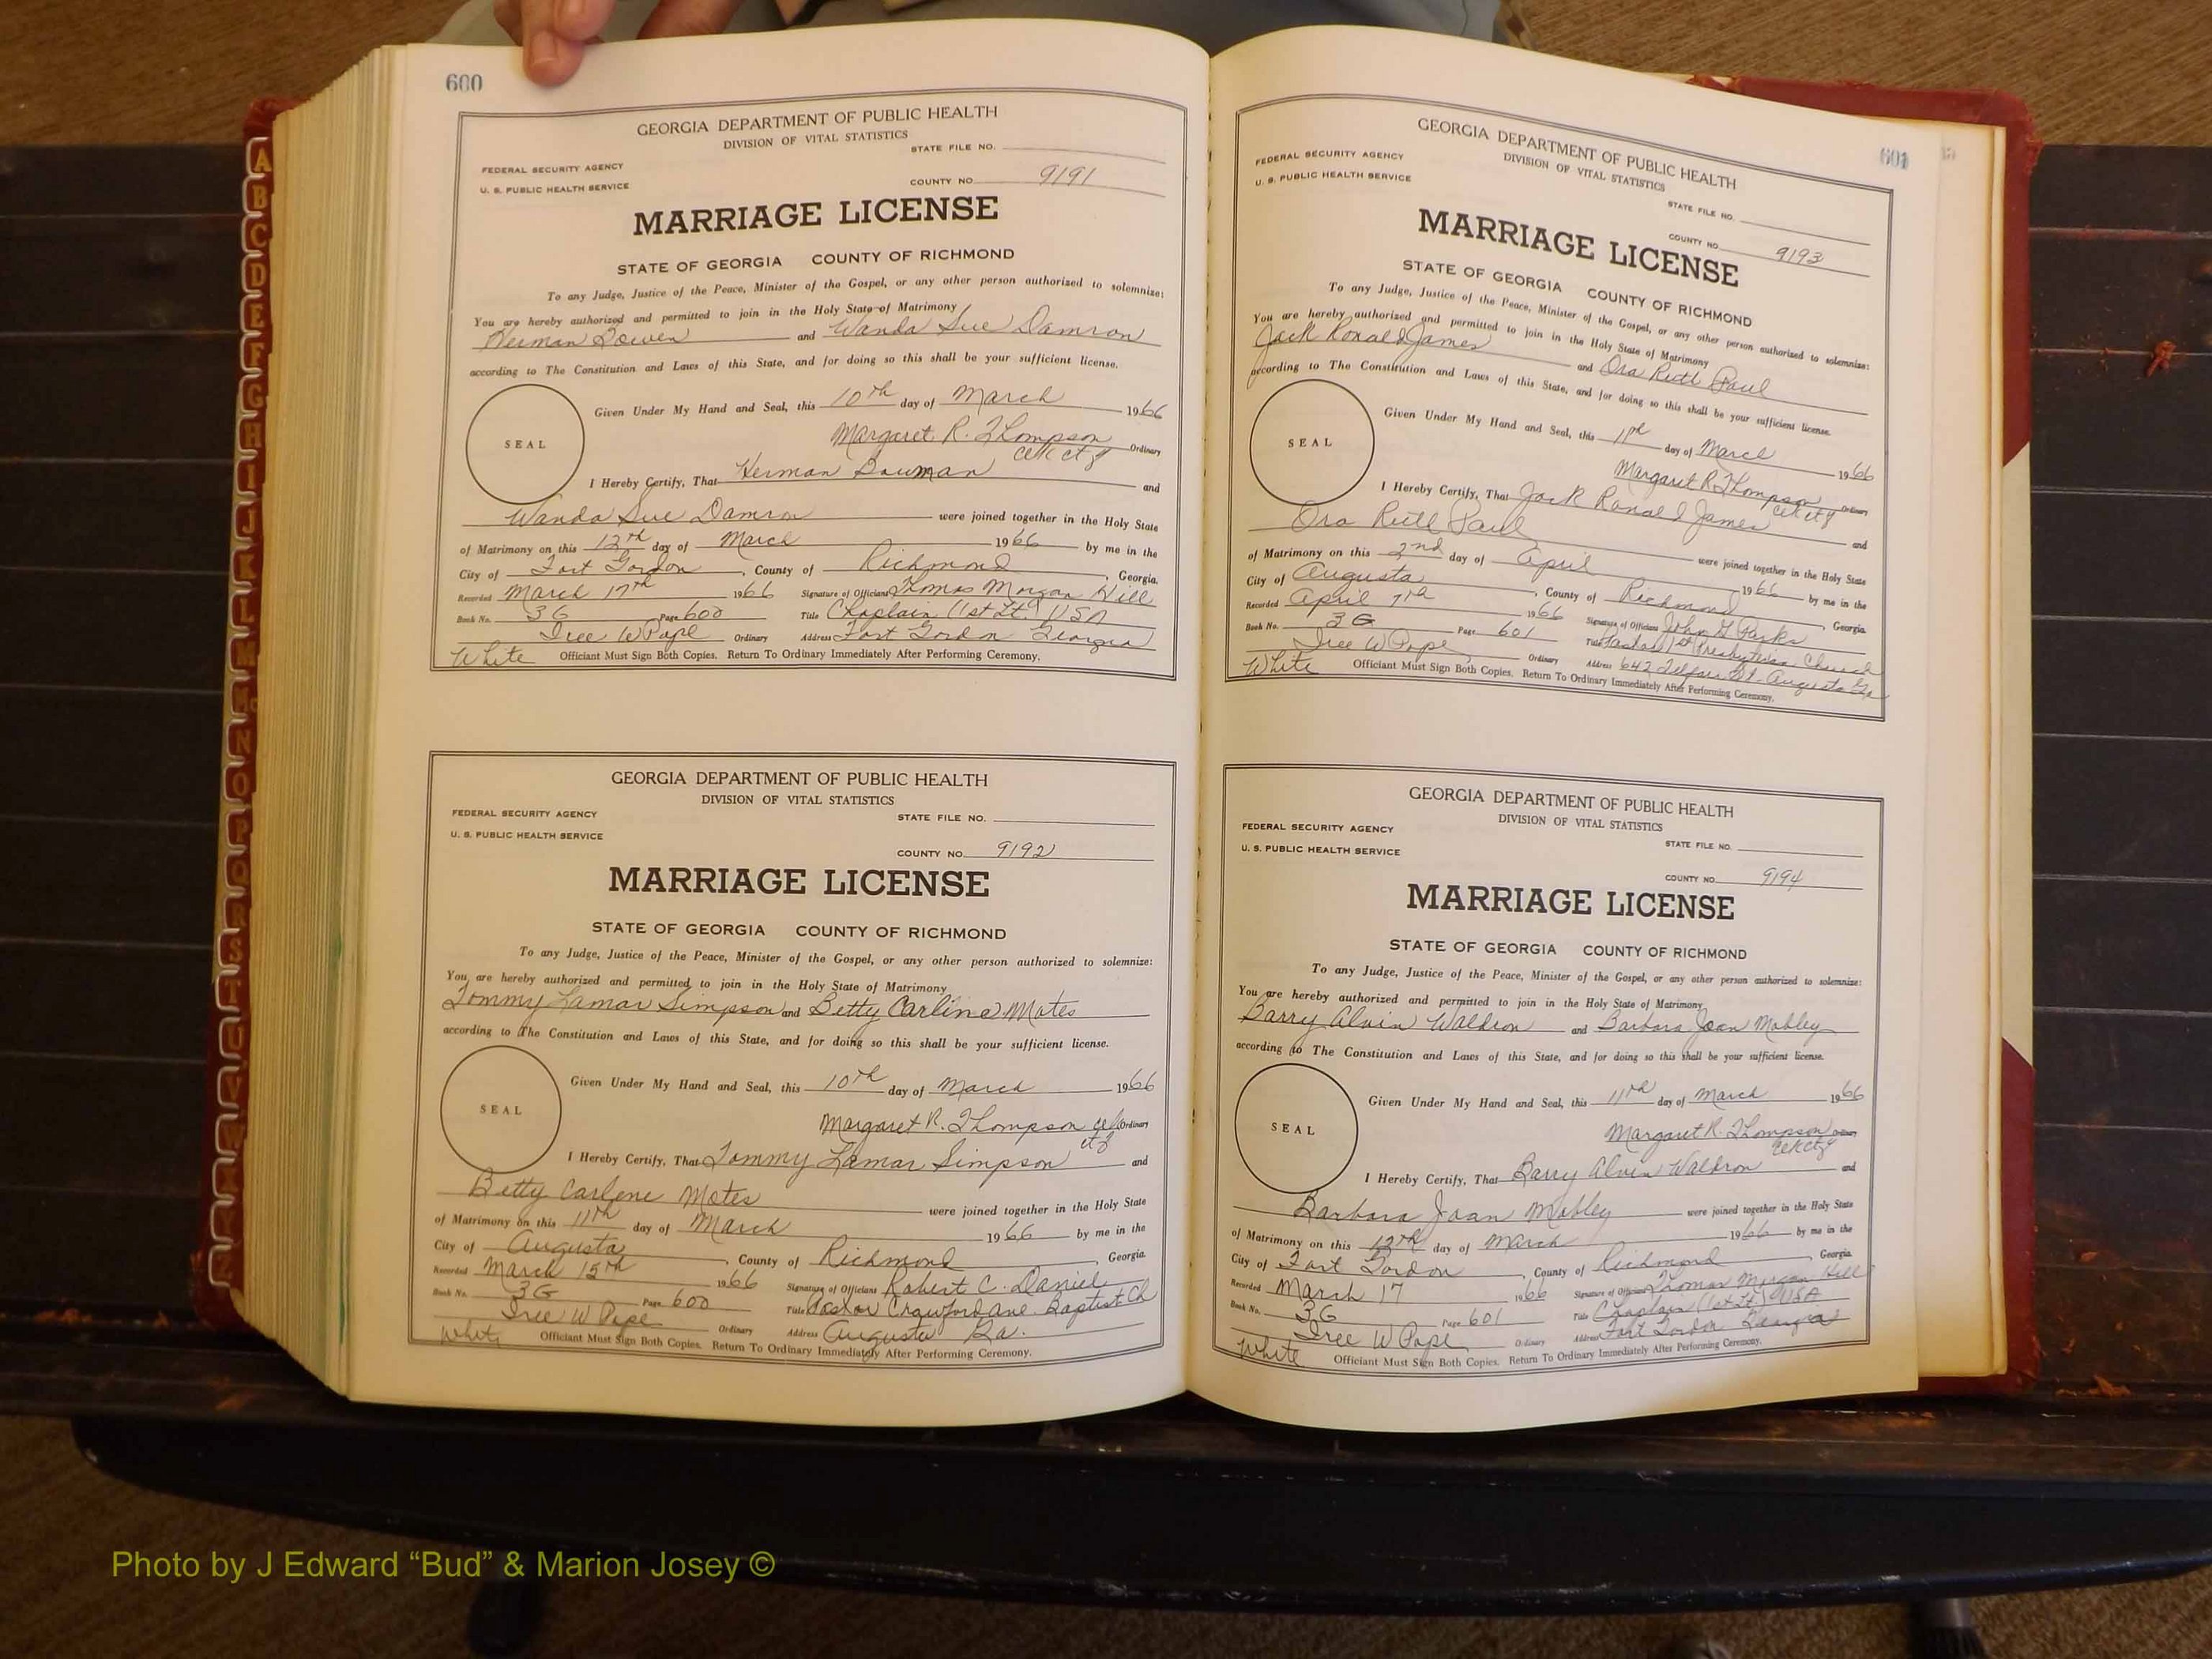 A
B
C
D
E
F
G
H
I
J
K
L
M
Mc
N
O
P
Q
R
S
T
U
V
W
600
GEORGIA DEPARTMENT OF PUBLIC HEALTH
DIVISION OF VITAL STATISTICS
STATE FILE NO.
FEDERAL SECURITY AGENCY
U. S. PUBLIC HEALTH SERVICE
COUNTY NO. 9191
MARRIAGE LICENSE
STATE OF GEORGIA COUNTY OF RICHMOND
To any Judge, Justice of the Peace, Minister of the Gospel, or any other person authorized to solemnize:
You are hereby authorized and permitted to join in the Holy State of Matrimony
Herman Bowen and Wanda Sue Damron
according to The Constitution and Laws of this State, and for doing so this shall be your sufficient license.
Given Under My Hand and Seal, this 10th day of March 1966
SEAL
Margaret R. Thompson Ordinary
I Hereby Certify, That Herman Bowman and
Wanda Sue Damron were joined together in the Holy State
of Matrimony on this 12th day of March 1966 by me in the
City of Fort Gordon, County of Richmond, Georgia.
Recorded March 17th 1966 Signature of Officiant Thomas Morgan Hill
Book No. 3G Page 600 Title Chaplain (1st Lt.) USA
Iree W Pope Ordinary Address Fort Gordon Georgia
White Officiant Must Sign Both Copies. Return To Ordinary Immediately After Performing Ceremony.
GEORGIA DEPARTMENT OF PUBLIC HEALTH
DIVISION OF VITAL STATISTICS
FEDERAL SECURITY AGENCY
STATE FILE NO.
U. S. PUBLIC HEALTH SERVICE
COUNTY NO. 9192
MARRIAGE LICENSE
STATE OF GEORGIA COUNTY OF RICHMOND
To any Judge, Justice of the Peace, Minister of the Gospel, or any other person authorized to solemnize:
You are hereby authorized and permitted to join in the Holy State of Matrimony
Tommy Lamar Simpson and Betty Carline Motes
according to The Constitution and Laws of this State, and for doing so this shall be your sufficient license.
Given Under My Hand and Seal, this 10th day of March 1966
SEAL
Margaret R. Thompson Ordinary
I Hereby Certify, That Tommy Lamar Simpson and
Betty Carlene Motes were joined together in the Holy State
of Matrimony on this 11th day of March 1966 by me in the
City of Augusta, County of Richmond, Georgia.
Recorded March 15th 1966 Signature of Officiant Robert C. Daniel
Book No. 3G Page 600 Title Pastor Crawford Ave Baptist Ch
Iree W Pope Ordinary Address Augusta Ga.
White Officiant Must Sign Both Copies. Return To Ordinary Immediately After Performing Ceremony.
601
GEORGIA DEPARTMENT OF PUBLIC HEALTH
DIVISION OF VITAL STATISTICS
FEDERAL SECURITY AGENCY
U. S. PUBLIC HEALTH SERVICE
STATE FILE NO.
COUNTY NO. 9193
MARRIAGE LICENSE
STATE OF GEORGIA COUNTY OF RICHMOND
To any Judge, Justice of the Peace, Minister of the Gospel, or any other person authorized to solemnize:
You are hereby authorized and permitted to join in the Holy State of Matrimony
Jack Ronald James and Ora Ruth Paul
according to The Constitution and Laws of this State, and for doing so this shall be your sufficient license.
Given Under My Hand and Seal, this 11th day of March 1966
SEAL
Margaret R Thompson Ordinary
I Hereby Certify, That Jack Ronald James and
Ora Ruth Paul were joined together in the Holy State
of Matrimony on this 2nd day of April 1966 by me in the
City of Augusta, County of Richmond, Georgia.
Recorded April 7th 1966 Signature of Officiant John G Parks
Book No. 3G Page 601 Title Pastor 1st Presbyterian Church
Iree W Pope Ordinary Address 642 Telfair St. Augusta Ga
White Officiant Must Sign Both Copies. Return To Ordinary Immediately After Performing Ceremony.
GEORGIA DEPARTMENT OF PUBLIC HEALTH
DIVISION OF VITAL STATISTICS
FEDERAL SECURITY AGENCY
STATE FILE NO.
U. S. PUBLIC HEALTH SERVICE
COUNTY NO. 9194
MARRIAGE LICENSE
STATE OF GEORGIA COUNTY OF RICHMOND
To any Judge, Justice of the Peace, Minister of the Gospel, or any other person authorized to solemnize:
You are hereby authorized and permitted to join in the Holy State of Matrimony
Barry Alvin Waldron and Barbara Joan Mobley
according to The Constitution and Laws of this State, and for doing so this shall be your sufficient license.
Given Under My Hand and Seal, this 11th day of March 1966
SEAL
Margaret R. Thompson Ordinary
I Hereby Certify, That Barry Alvin Waldron and
Barbara Joan Mobley were joined together in the Holy State
of Matrimony on this 12th day of March 1966 by me in the
City of Fort Gordon, County of Richmond, Georgia.
Recorded March 17 1966 Signature of Officiant Thomas Morgan Hill
Book No. 3G Page 601 Title Chaplain (1st Lt) USA
Iree W Pope Ordinary Address Fort Gordon Georgia
White Officiant Must Sign Both Copies. Return To Ordinary Immediately After Performing Ceremony.
Photo by J Edward “Bud” & Marion Josey ©